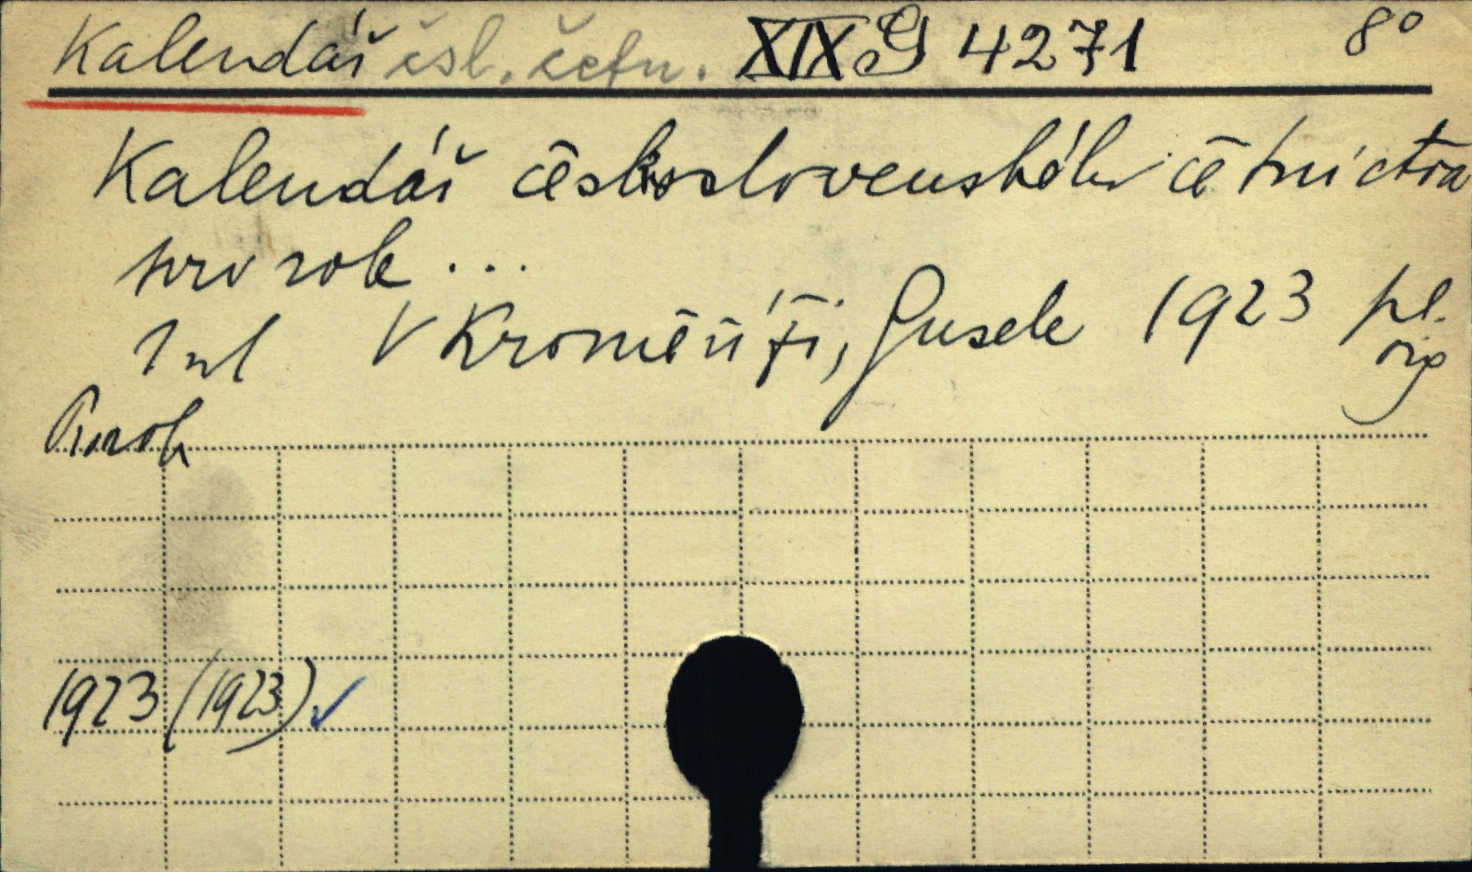 Kalendář čsl. četn. XIX G 4271 8°
Kalendář československého četnictva
pro rok ...
1 sv V Kroměříži, Gusek 1923 pl.
orig
Pro rok
1923 (1923) ✓